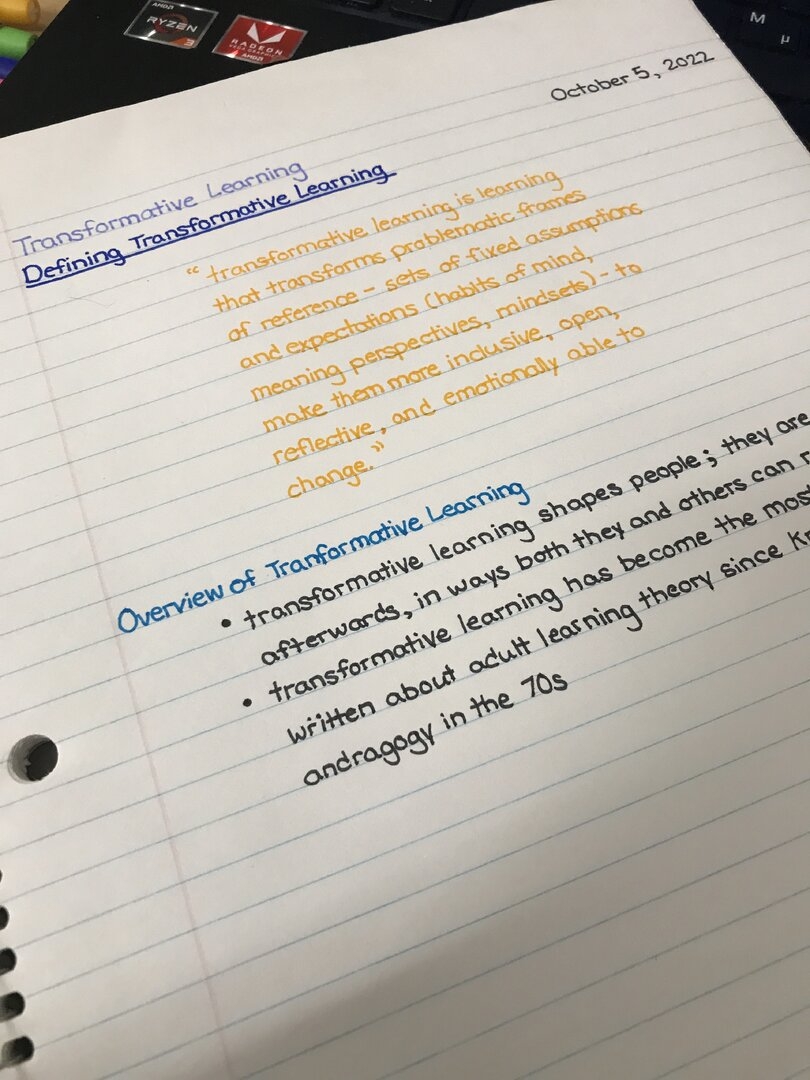 AMD
RYZEN
3
RADEON
VEGA GRAPHICS
AMD
M
µ
October 5, 2022
Transformative Learning
Defining Transformative Learning
“transformative learning is learning
that transforms problematic frames
of reference – sets of fixed assumptions
and expectations (habits of mind,
meaning perspectives, mindsets) - to
make them more inclusive, open,
reflective, and emotionally able to
change.”
Overview of Tranformative Learning
• transformative learning shapes people; they are
afterwards, in ways both they and others can
• transformative learning has become the most
written about adult learning theory since
andragogy in the 70s